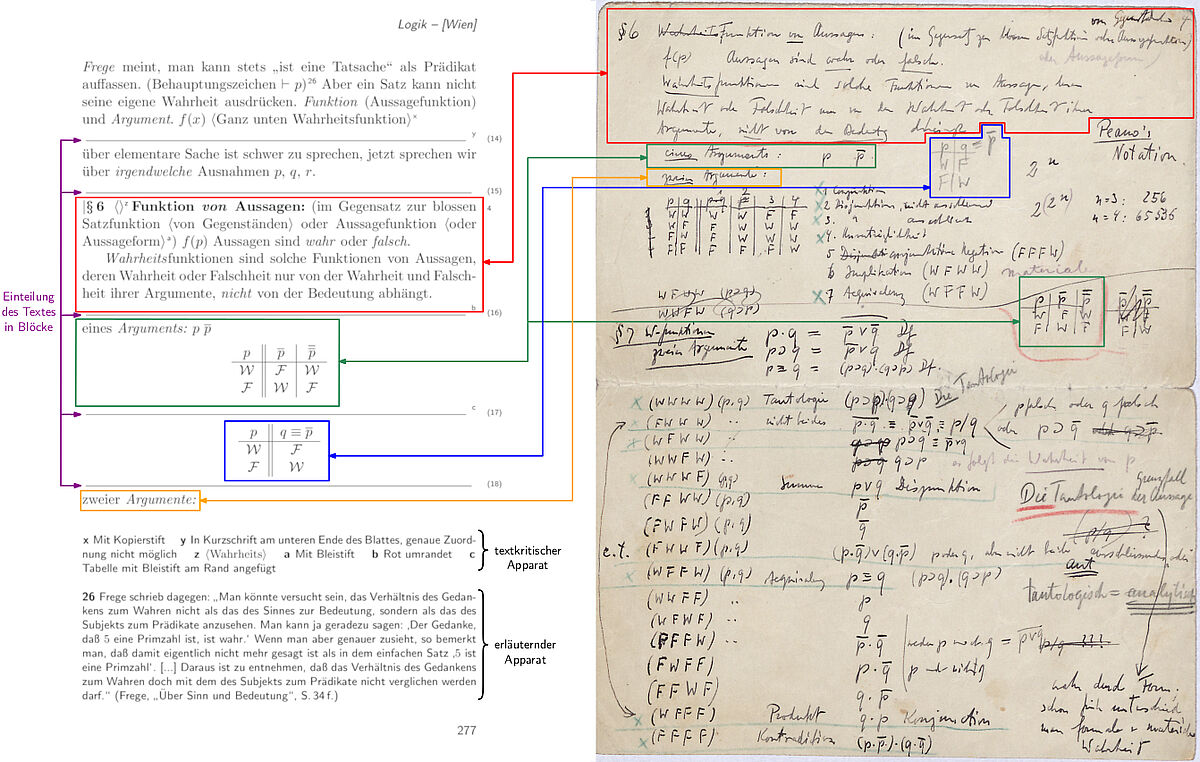 Logik – Wien
Frege meint, man kann stets „ist eine Tatsache“ als Prädikat
auffassen. (Behauptungszeichen ⊢ p)²⁶ Aber ein Satz kann nicht
seine eigene Wahrheit ausdrücken. Funktion (Aussagefunktion)
und Argument. f(x) (Ganz unten Wahrheitsfunktion)ˣ
y (14)
über elementare Sache ist schwer zu sprechen, jetzt sprechen wir
über irgendwelche Ausnahmen p, q, r.
(15)
|§ 6 ⟨⟩ᶻ Funktion von Aussagen: (im Gegensatz zur blossen 4
Satzfunktion ⟨von Gegenständen⟩ oder Aussagefunktion ⟨oder
Aussageform⟩ᵃ) f(p) Aussagen sind wahr oder falsch.
Wahrheitsfunktionen sind solche Funktionen von Aussagen,
deren Wahrheit oder Falschheit nur von der Wahrheit und Falsch-
heit ihrer Argumente, nicht von der Bedeutung abhängt.
b (16)
eines Arguments: p p̅
p p̅ p̿
W F W
F W F
c (17)
p q ≡ p̅
W F
F W
(18)
zweier Argumente:
Einteilung
des Textes
in Blöcke
x Mit Kopierstift y In Kurzschrift am unteren Ende des Blattes, genaue Zuord-
nung nicht möglich z ⟨Wahrheits⟩ a Mit Bleistift b Rot umrandet c
Tabelle mit Bleistift am Rand angefügt
textkritischer
Apparat
26 Frege schrieb dagegen: „Man könnte versucht sein, das Verhältnis des Gedan-
kens zum Wahren nicht als das des Sinnes zur Bedeutung, sondern als das des
Subjekts zum Prädikate anzusehen. Man kann ja geradezu sagen: ‚Der Gedanke,
daß 5 eine Primzahl ist, ist wahr.‘ Wenn man aber genauer zusieht, so bemerkt
man, daß damit eigentlich nicht mehr gesagt ist als in dem einfachen Satz ‚5 ist
eine Primzahl‘. [...] Daraus ist zu entnehmen, daß das Verhältnis des Gedankens
zum Wahren doch mit dem des Subjekts zum Prädikate nicht verglichen werden
darf.“ (Frege, „Über Sinn und Bedeutung“, S. 34 f.)
erläuternder
Apparat
277
§ 6 Wahrheitsfunktion von Aussagen: (im Gegensatz zur blossen Satzfunktion oder Aussagefunktion)
von Gegenständen
oder Aussageform)
f(p) Aussagen sind wahr oder falsch.
Wahrheitsfunktionen sind solche Funktionen von Aussagen, deren
Wahrheit oder Falschheit nur von der Wahrheit oder Falschheit ihrer
Argumente nicht von der Bedeutung abhängt
eines Arguments: p p̅
zweier Argumente:
Peano's
Notation.
2ⁿ
2^(2ⁿ) n=3: 256
n=4: 65536
1 Conjunktion
2 Disjunktion, nicht ausschliessend
3. " ausschliessend
4. Unverträglichkeit
Negation (FFFW)
6 Implikation (WFWW) material
7 Acquivalenz (WFFW)
WFWW (p⊃q)
WWFW (q⊃p)
p p̅ p̿
W F W
F W F
§7 W-funktionen
zweier Argumente
p·q =
p⊃q = p̅∨q Df
p≡q = (p⊃q)·(q⊃p) Df.
(WWWW) (p,q) Tautologie (p⊃p)·(q⊃q) Die Tautologie
(FWWW) nicht beides p̅∨q̅ ≡ p/q
(WFWW) p⊃q ≡ p̅∨q
(WWFW) q⊃p
(WWWF) (p,q) Summe p∨q Disjunktion
(FFWW) (p,q) p̅
(FWFW) (p,q) q̅
e.t. (FWWF) (p,q) (p·q̅)∨(q·p̅)
(WFFW) (p,q) Acquivalenz p≡q (p⊃q)·(q⊃p)
(WWFF) p
(WFWF) q
(FFFW) p̅·q̅
(FWFF) p·q̅
(FFWF) q·p̅
(WFFF) Produkt q·p Conjunction
(FFFF) Kontradiktion (p·p̅)·(q·q̅)
p falsch oder q falsch
oder p⊃q̅
Die Tautologie Grenzfall
der Aussage
aut
Tautologisch = analytisch
wahr durch Form.
schon früh unterschied
man formale u materiale
Wahrheit